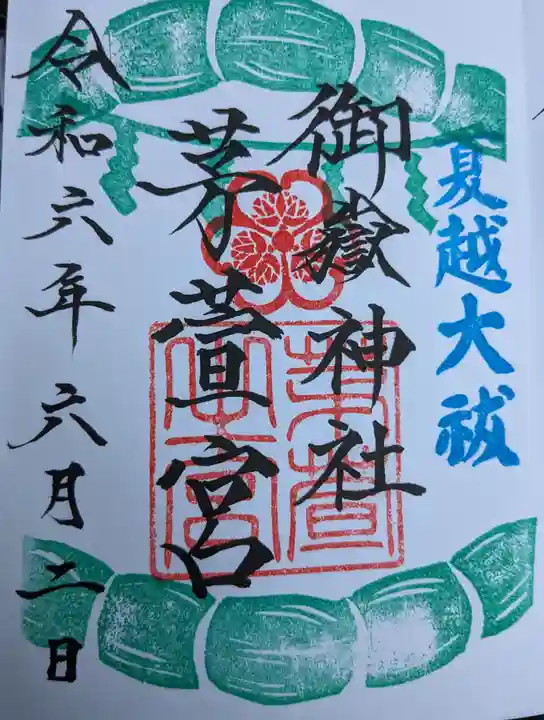 夏越大祓
御嶽神社
茅萱宮
令和六年六月二日